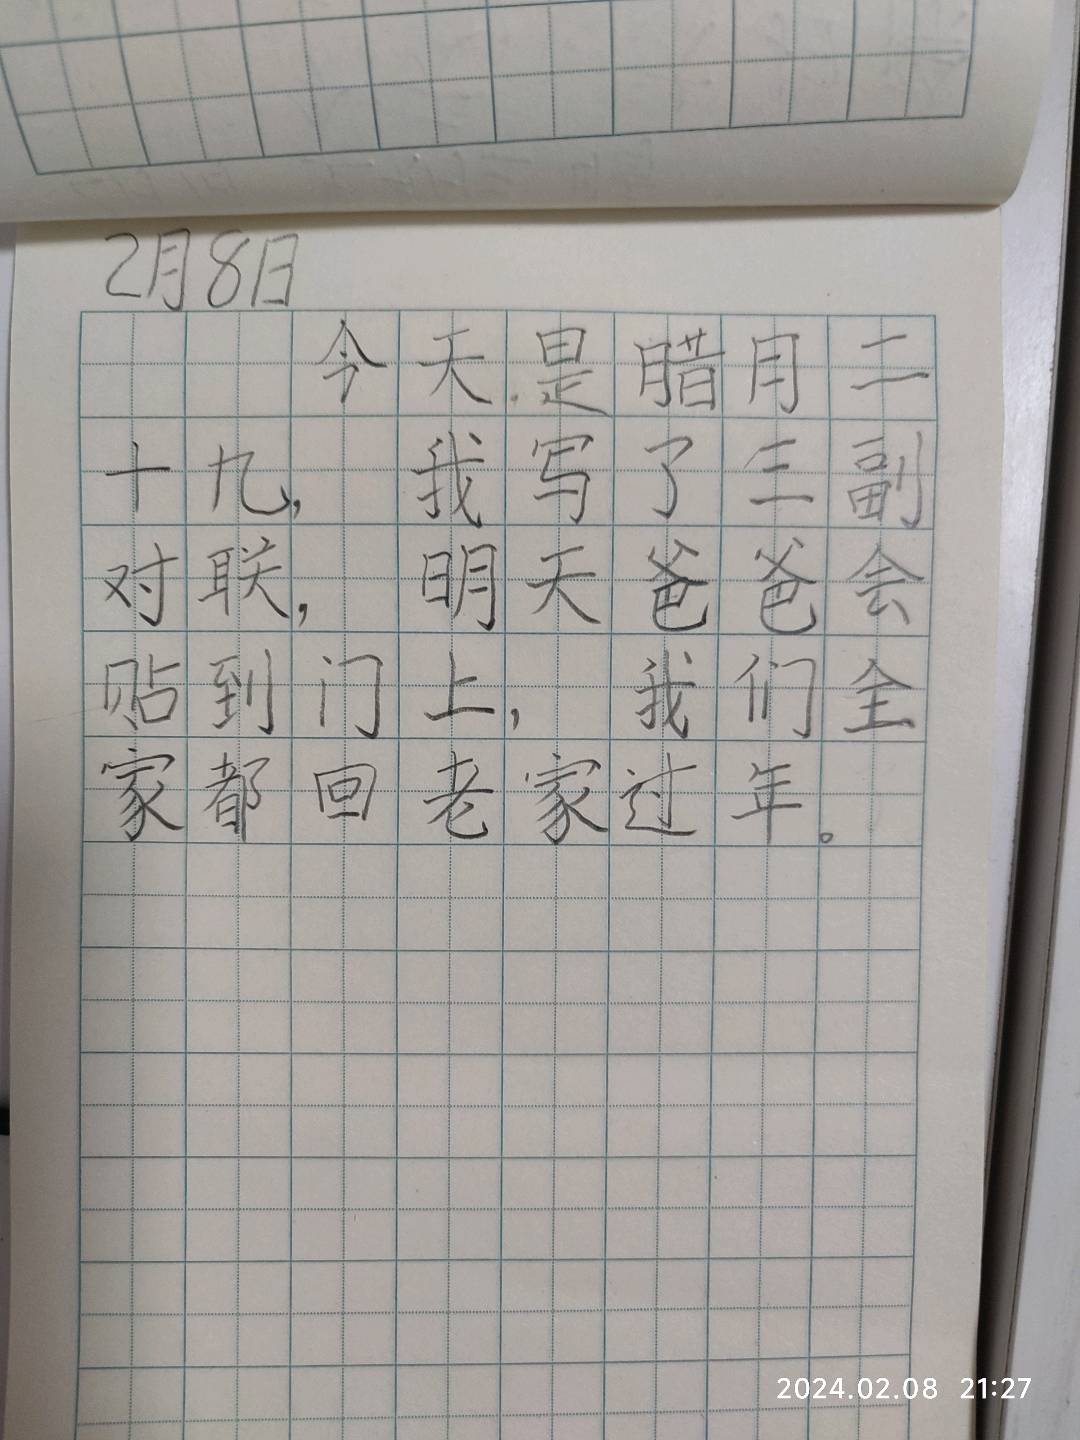 2月8日
今天是腊月二
十九，我写了三副
对联，明天爸爸会
贴到门上，我们全
家都回老家过年。
2024.02.08 21:27